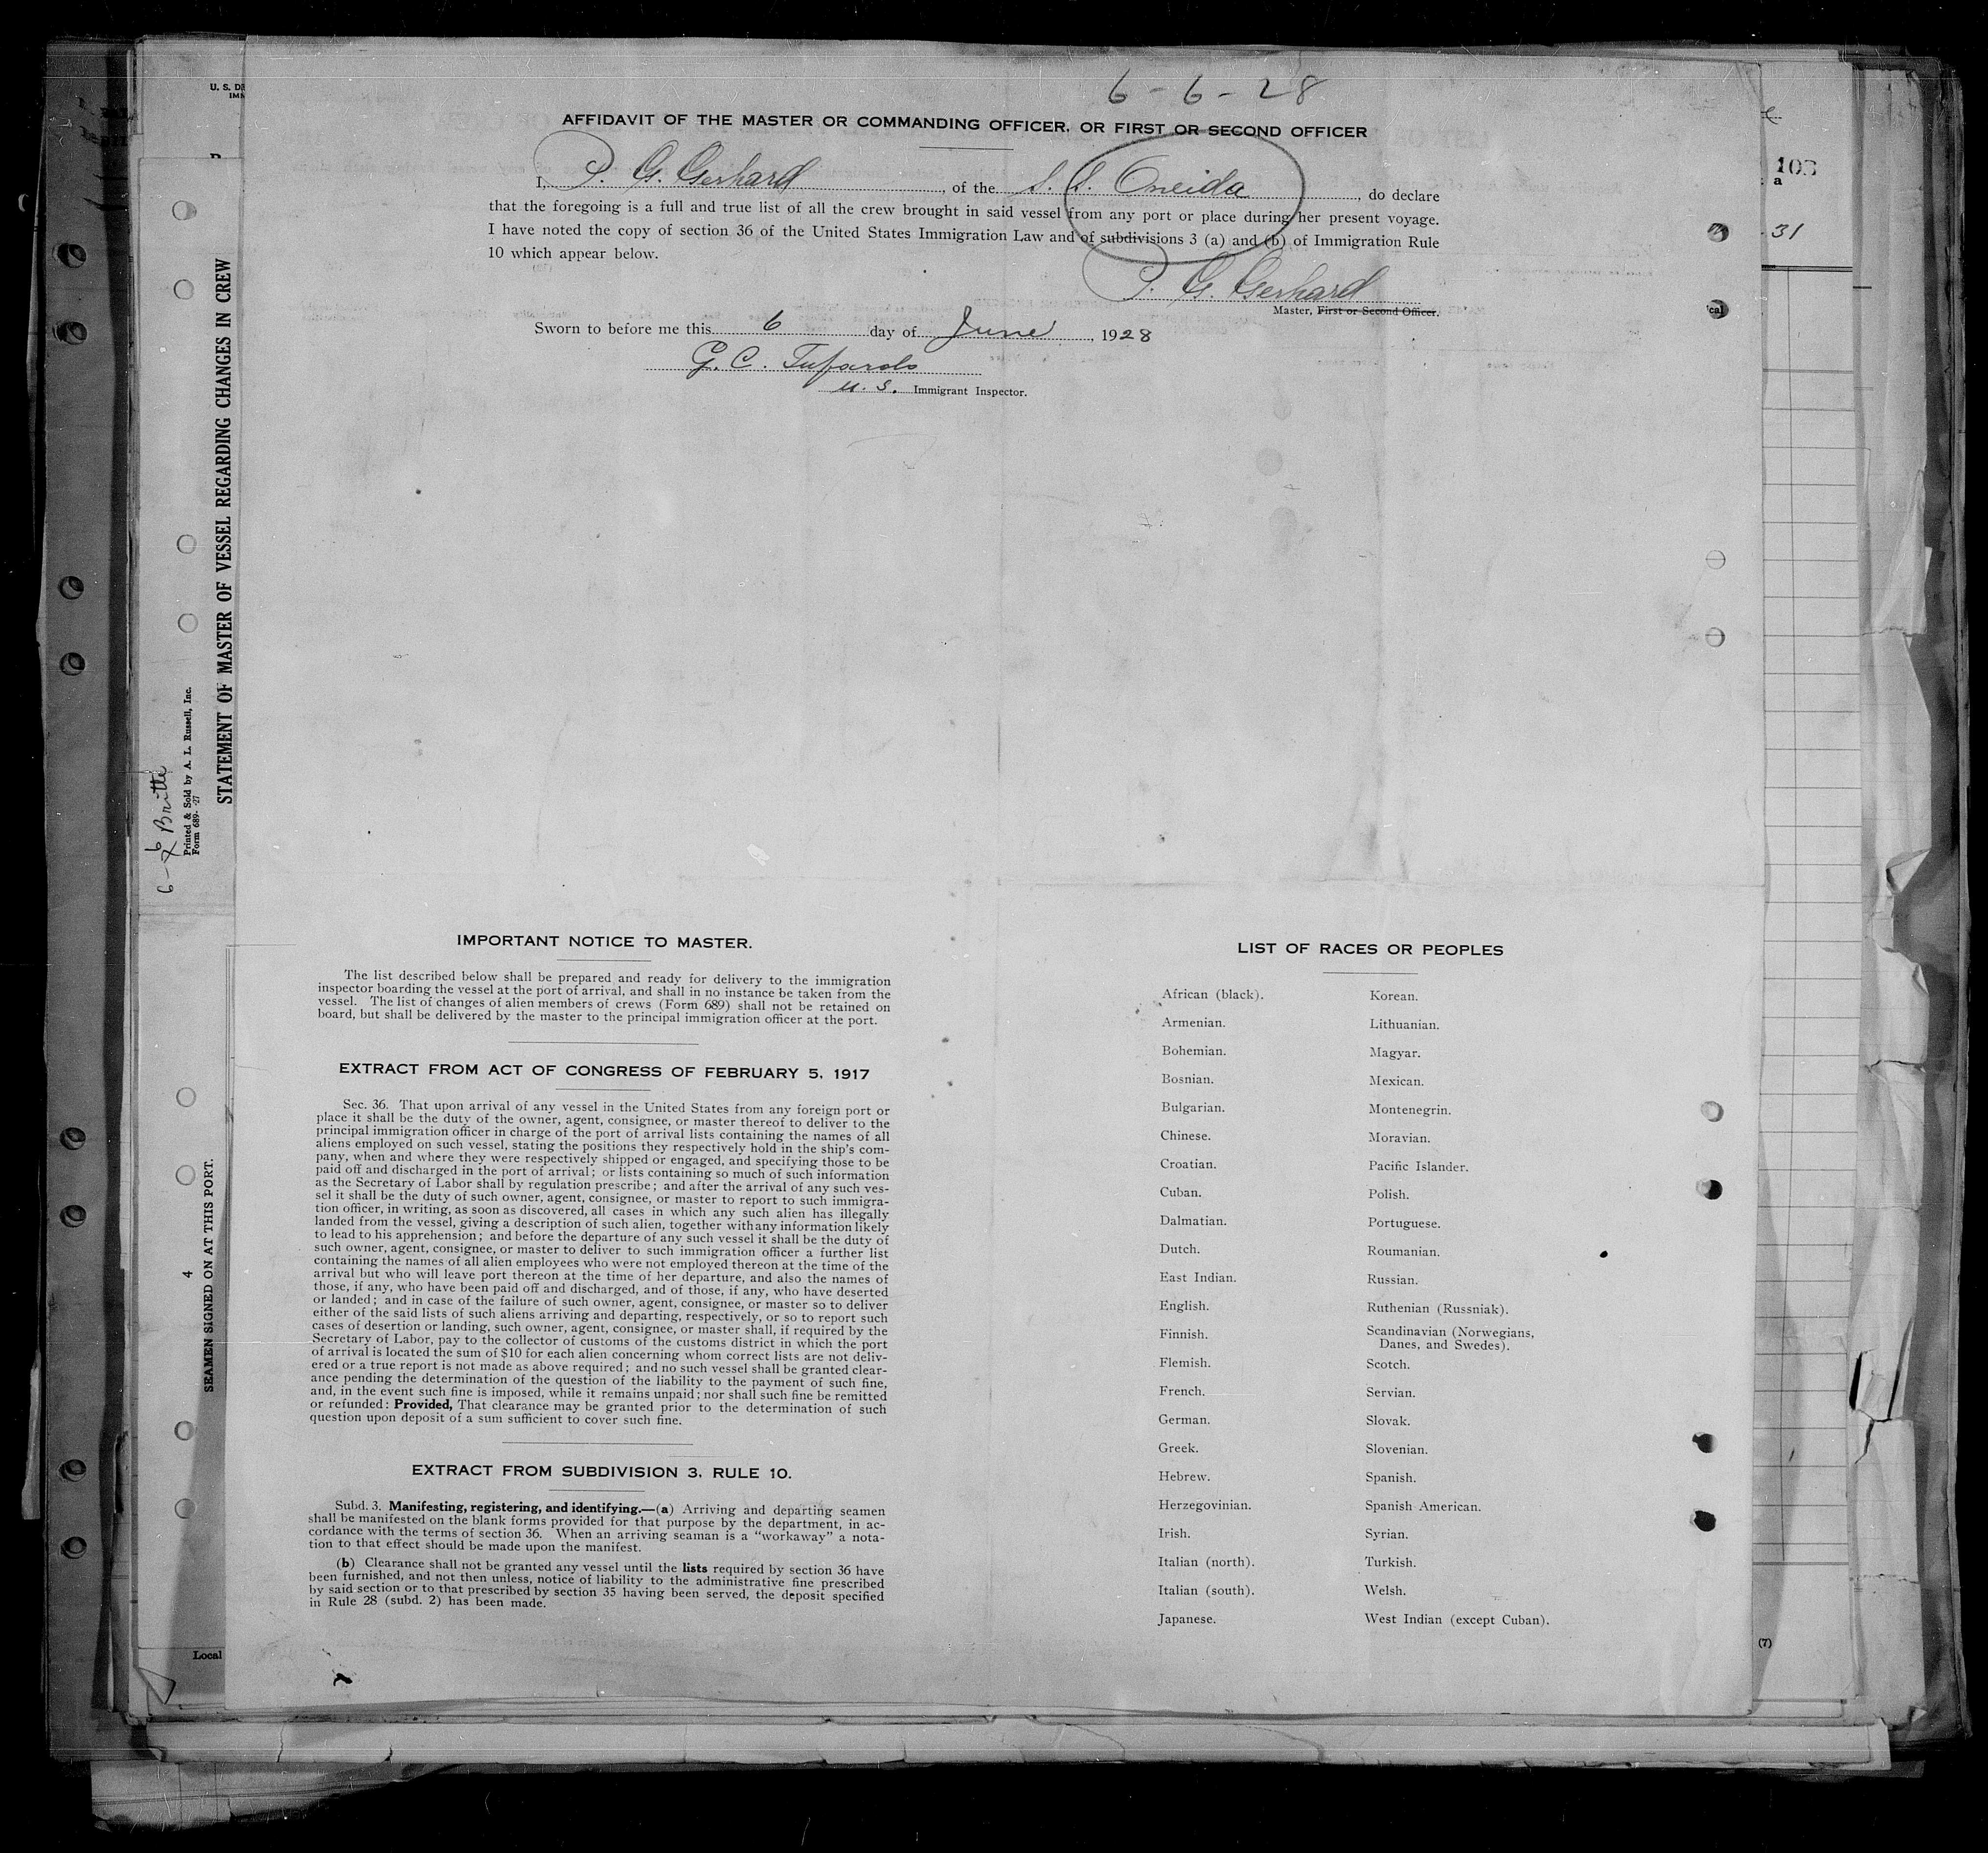 6-6-28
AFFIDAVIT OF THE MASTER OR COMMANDING OFFICER, OR FIRST OR SECOND OFFICER
I, P. G. Gerhard, of the S. S. Oneida, do declare
that the foregoing is a full and true list of all the crew brought in said vessel from any port or place during her present voyage.
I have noted the copy of section 36 of the United States Immigration Law and of subdivisions 3 (a) and (b) of Immigration Rule
10 which appear below.
P. G. Gerhard
Master, First or Second Officer.
Sworn to before me this 6 day of June, 1928
G. C.
U. S. Immigrant Inspector.
IMPORTANT NOTICE TO MASTER.
The list described below shall be prepared and ready for delivery to the immigration
inspector boarding the vessel at the port of arrival, and shall in no instance be taken from the
vessel. The list of changes of alien members of crews (Form 689) shall not be retained on
board, but shall be delivered by the master to the principal immigration officer at the port.
EXTRACT FROM ACT OF CONGRESS OF FEBRUARY 5, 1917
Sec. 36. That upon arrival of any vessel in the United States from any foreign port or
place it shall be the duty of the owner, agent, consignee, or master thereof to deliver to the
principal immigration officer in charge of the port of arrival lists containing the names of all
aliens employed on such vessel, stating the positions they respectively hold in the ship's com-
pany, when and where they were respectively shipped or engaged, and specifying those to be
paid off and discharged in the port of arrival; or lists containing so much of such information
as the Secretary of Labor shall by regulation prescribe; and after the arrival of any such ves-
sel it shall be the duty of such owner, agent, consignee, or master to report to such immigra-
tion officer, in writing, as soon as discovered, all cases in which any such alien has illegally
landed from the vessel, giving a description of such alien, together with any information likely
to lead to his apprehension; and before the departure of any such vessel it shall be the duty of
such owner, agent, consignee, or master to deliver to such immigration officer a further list
containing the names of all alien employees who were not employed thereon at the time of the
arrival but who will leave port thereon at the time of her departure, and also the names of
those, if any, who have been paid off and discharged, and of those, if any, who have deserted
or landed; and in case of the failure of such owner, agent, consignee, or master so to deliver
either of the said lists of such aliens arriving and departing, respectively, or so to report such
cases of desertion or landing, such owner, agent, consignee, or master shall, if required by the
Secretary of Labor, pay to the collector of customs of the customs district in which the port
of arrival is located the sum of $10 for each alien concerning whom correct lists are not deliv-
ered or a true report is not made as above required; and no such vessel shall be granted clear-
ance pending the determination of the question of the liability to the payment of such fine,
and, in the event such fine is imposed, while it remains unpaid; nor shall such fine be remitted
or refunded: Provided, That clearance may be granted prior to the determination of such
question upon deposit of a sum sufficient to cover such fine.
EXTRACT FROM SUBDIVISION 3, RULE 10.
Subd. 3. Manifesting, registering, and identifying.—(a) Arriving and departing seamen
shall be manifested on the blank forms provided for that purpose by the department, in ac-
cordance with the terms of section 36. When an arriving seaman is a "workaway" a nota-
tion to that effect should be made upon the manifest.
(b) Clearance shall not be granted any vessel until the lists required by section 36 have
been furnished, and not then unless, notice of liability to the administrative fine prescribed
by said section or to that prescribed by section 35 having been served, the deposit specified
in Rule 28 (subd. 2) has been made.
LIST OF RACES OR PEOPLES
African (black). Korean.
Armenian. Lithuanian.
Bohemian. Magyar.
Bosnian. Mexican.
Bulgarian. Montenegrin.
Chinese. Moravian.
Croatian. Pacific Islander.
Cuban. Polish.
Dalmatian. Portuguese.
Dutch. Roumanian.
East Indian. Russian.
English. Ruthenian (Russniak).
Finnish. Scandinavian (Norwegians,
Danes, and Swedes).
Flemish. Scotch.
French. Servian.
German. Slovak.
Greek. Slovenian.
Hebrew. Spanish.
Herzegovinian. Spanish American.
Irish. Syrian.
Italian (north). Turkish.
Italian (south). Welsh.
Japanese. West Indian (except Cuban).
U. S. DE
IMM
Printed & Sold by A. L. Russell, Inc.
Form 689- -27
STATEMENT OF MASTER OF VESSEL REGARDING CHANGES IN CREW
4
SEAMEN SIGNED ON AT THIS PORT.
Local
103
a
31
(7)